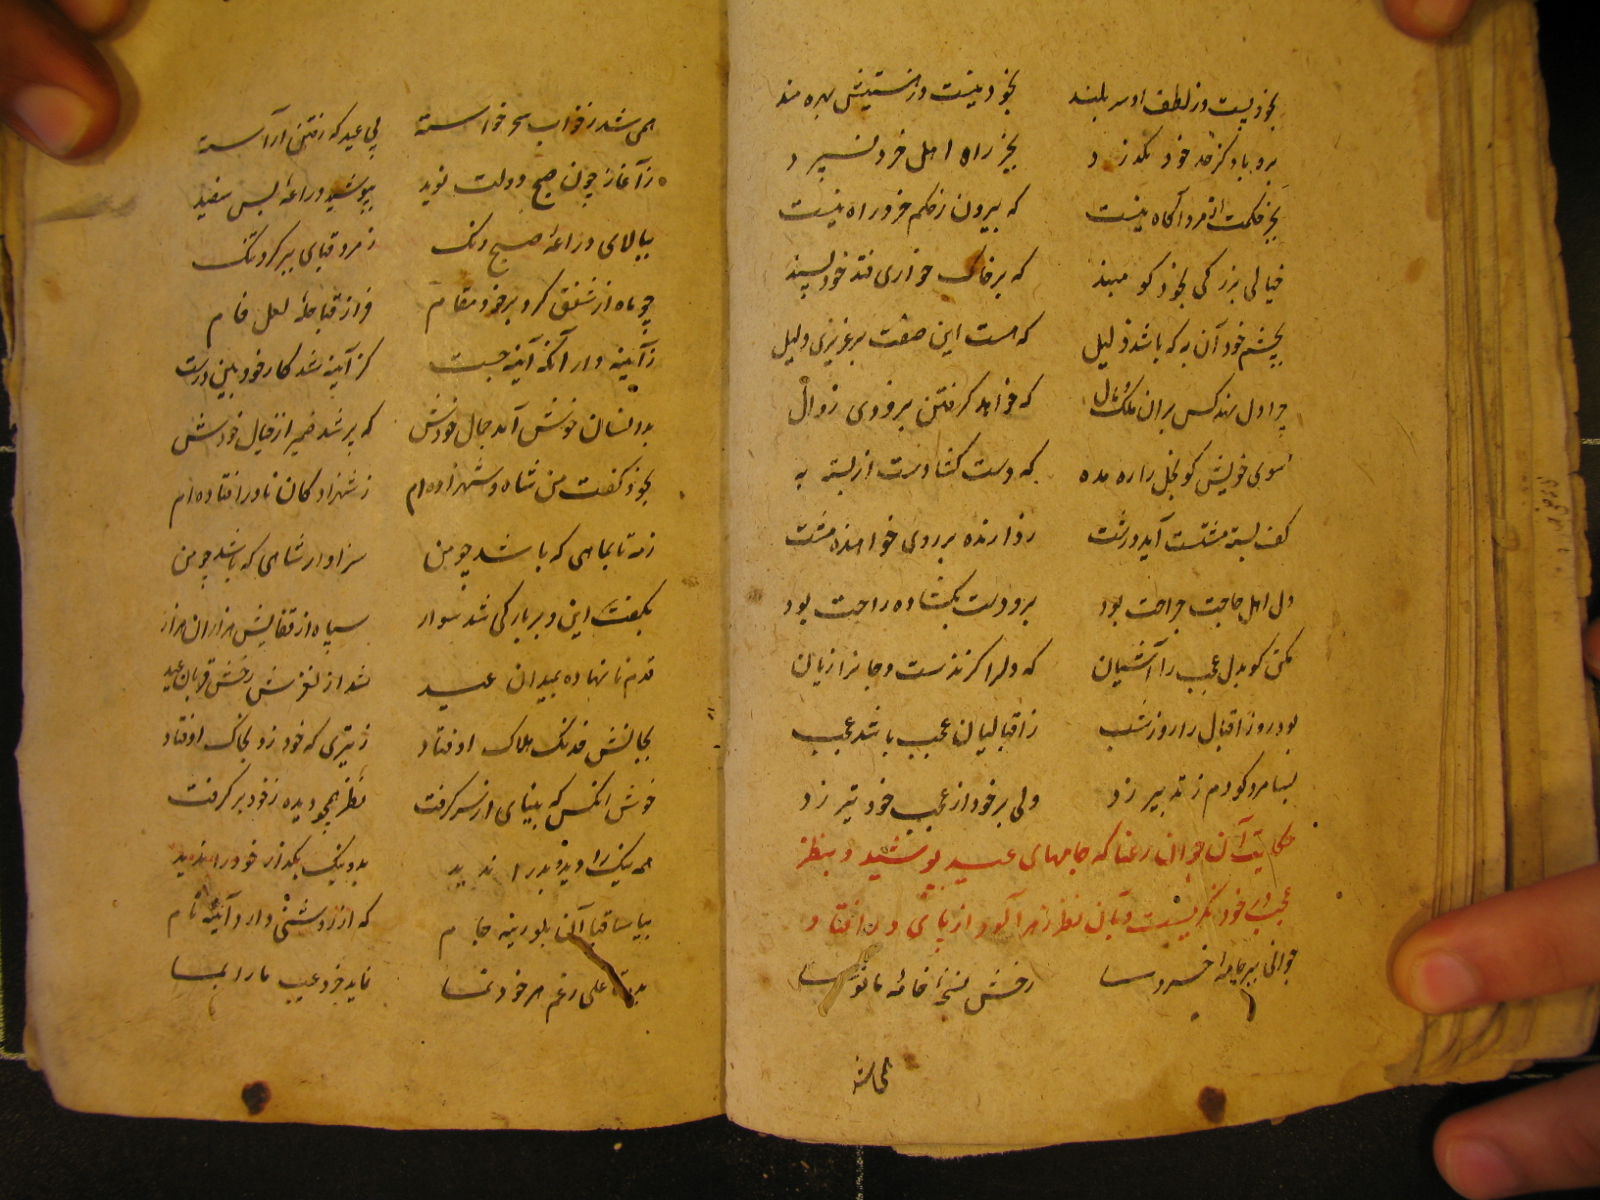 بخود پست وز لطف او سر بلند بخود نیست وز هستیش بهره مند
برو باد کز حد خود نگذرد بجز راه اهل خرد نسپرد
بجز حکمت از مرد آگاه نیست که بیرون ز حکم خرد راه نیست
خیالی بزرگی بخود کو مبند که بر خاک خواری فتد خود پسند
بچشم خود آن به که باشد ذلیل که هست این صفت بر عزیزی دلیل
چرا دل نهد کس بران ملک و مال که خواهد گرفتن بزودی زوال
سوی خویش کو بخل را ره مده که دست گشا دست از بسته به
کف بسته مشتست آید درشت روا رنده بر روی خواهنده مشت
دل اهل حاجت جراحت بود برو دست بگشاده راحت بود
مکن کو بدل عجب را آشیان که دلرا گزندست و جانرا زیان
بود روز اقبال را روز شب ز اقبالیان عجب باشد عجب
بسا مرد کو دم ز تدبیر زد ولی بر خود از عجب خود تیر زد
حکایت آن جوان رعنا که جامهای عید پوشید و بنظر
عجب در خود نگریست و بآن نظر زهرآلود از پای در افتاد
جوانی ببر جامهٔ خسروسا رخش نسخهٔ خامهٔ مانوسا
همی شد
همی شد ز خواب سحر خواسته پی عید که رفتن آراسته
ز آغاز چون صبح دولت نوید بپوشید دراعهٔ بس سفید
ببالای دراعهٔ صبح رنگ زمرد قبای ببر کرد تنگ
چو ماه از شفق کرد بر خود مقام فراز قبا جلهٔ لعل فام
ز آیینه دار آنگه آیینه جست کز آیینه شد کار خود بین درست
بدانسان خوش آمد جمال خودش که پر شد ضمیر از خیال خودش
بخود گفت من شاه و شهزاده ام ز شهزادگان نادر افتاده ام
ز مه تا بماهی که باشد چو من سزاوار شاهی که باشد چو من
بگفت این و بر بارگی شد سوار سپاه از قفایش هزاران هزار
قدم نا نهاده بمیدان عید شد از لغزش رخش قربان عید
بجانش خدنگ هلاک اوفتاد ز تیری که خود زد بخاک اوفتاد
خوش آنکس که بینای از سر گرفت نظر همچو دیده ز خود بر گرفت
همه نیک را دید و بد را ندید بد و نیک بگذار خود را ندید
بیا ساقیا آن بلورینه جام که از روشنی دارد آیینه نام
بده علی رغم هر خود نما نماید جز و عیب ما را بما